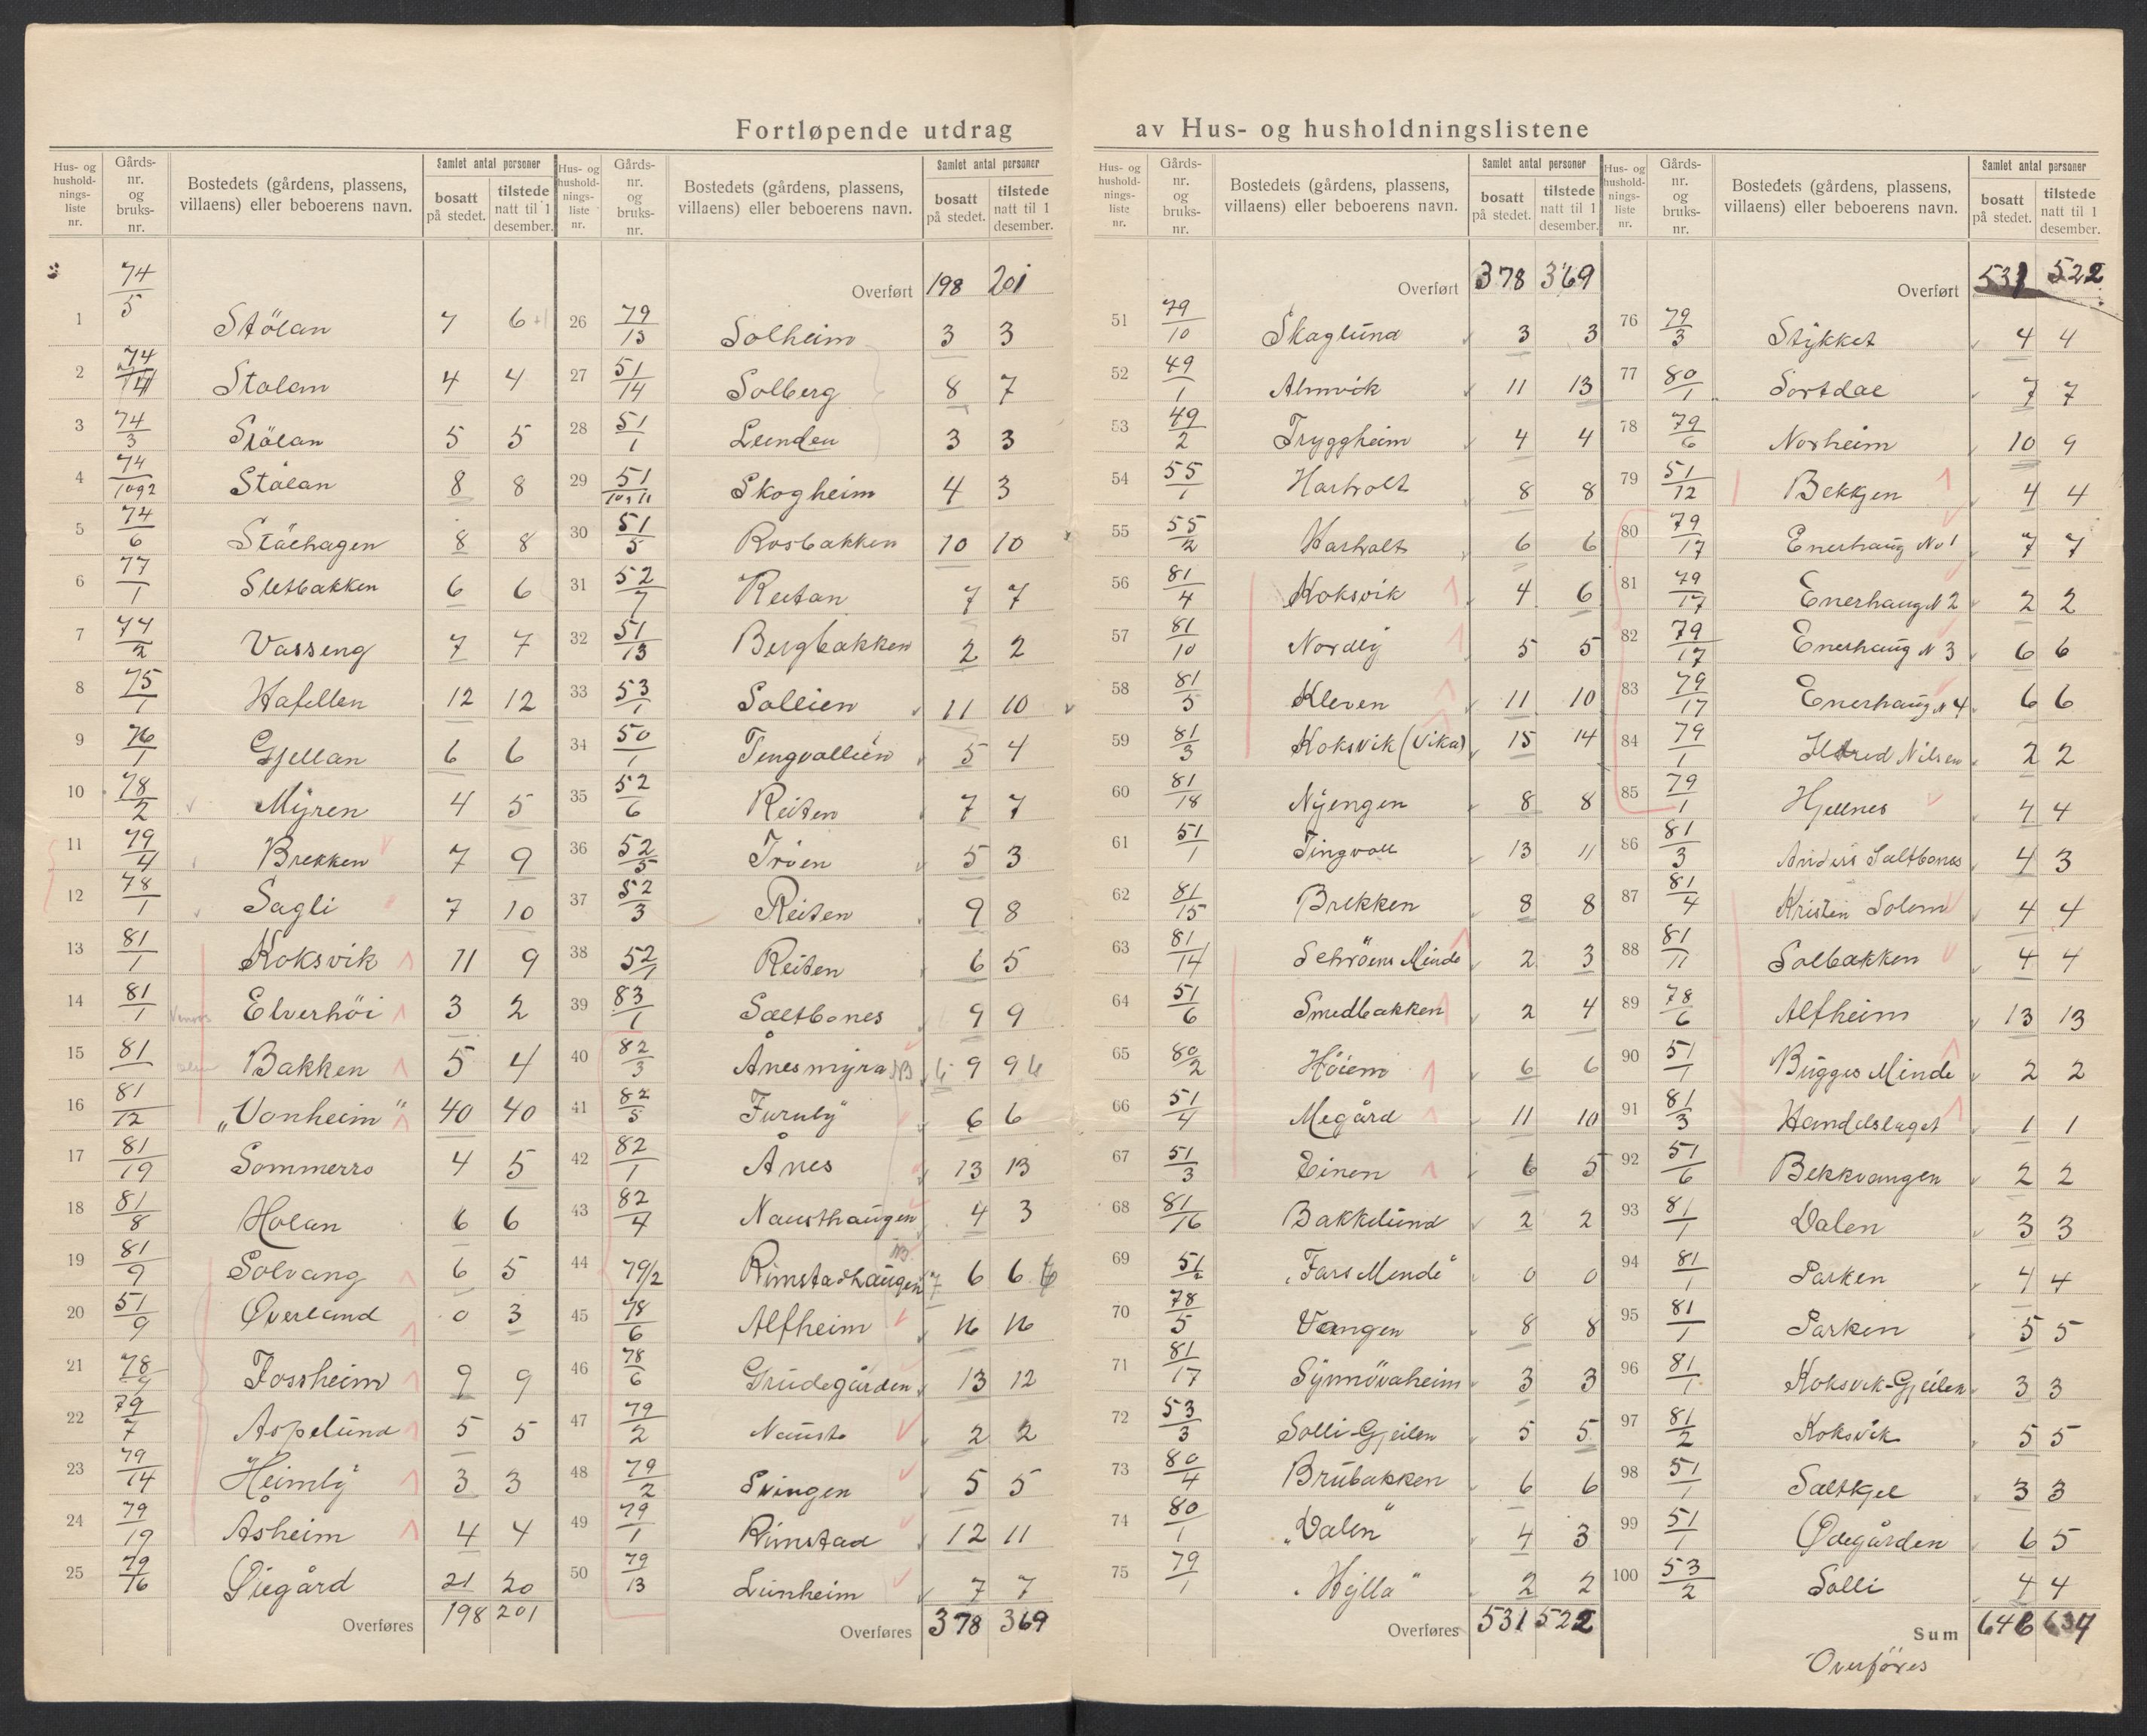 Fortløpende utdrag av Hus- og husholdningslistene
Hus- og hushold- nings- liste nr. | Gårds- nr. og bruks- nr. | Bostedets (gårdens, plassens, villaens) eller beboerens navn. | Samlet antal personer bosatt på stedet. | tilstede natt til 1 desember.
1 74/5 Stölan 7 6
2 74/4 Stölan 4 4
3 74/3 Stölan 5 5
4 74/1og2 Stölan 8 8
5 74/6 Stölhagen 8 8
6 77/1 Sletbakken 6 6
7 77/2 Vasseng 7 7
8 75/1 Hafellen 12 12
9 76/1 Gjellan 6 6
10 78/2 Myren 4 5
11 79/4 Brekken 7 9
12 78/1 Sagli 7 10
13 81/1 Koksvik 11 9
14 81/1 Elverhöi 3 2
15 81/ Bakken 5 4
16 81/12 „Vonheim" 40 40
17 81/19 Sommerro 4 5
18 81/8 Holan 6 6
19 81/9 Solvang 6 5
20 51/9 Øverland 0 3
21 78/4 Fossheim 9 9
22 79/7 Aspelund 5 5
23 79/14 Heimly 3 3
24 79/19 Åsheim 4 4
25 79/16 Øiegård 21 20
Overføres 198 201
Hus- og hushold- nings- liste nr. | Gårds- nr. og bruks- nr. | Bostedets (gårdens, plassens, villaens) eller beboerens navn. | Samlet antal personer bosatt på stedet. | tilstede natt til 1 desember.
Overført 198 201
26 79/15 Solheim 3 3
27 51/14 Solberg 8 7
28 51/1 Lunden 3 3
29 51/10g11 Skogheim 4 3
30 51/5 Rosbakken 10 10
31 52/7 Reitan 7 7
32 51/13 Bergbakken 2 2
33 53/1 Sollien 11 10
34 50/1 Tingvollien 5 4
35 52/6 Reiten 7 7
36 52/5 Tröen 5 3
37 52/3 Reiten 9 8
38 52/1 Reiten 6 5
39 83/1 Saltbones 9 9
40 82/3 Ånesmyra NB 6 9 9 6
41 82/5 Furuly 6 6
42 82/1 Ånes 13 13
43 82/4 Nausthaugen 4 3
44 79/2 Rimstadhaugen NB 7 6 6
45 78/6 Alfheim 16 16
46 78/6 Grudegården 13 12
47 79/2 Naust 2 2
48 79/2 Svingen 5 5
49 79/1 Rimstad 12 11
50 79/13 Lunheim 7 7
Overføres 378 369
Hus- og hushold- nings- liste nr. | Gårds- nr. og bruks- nr. | Bostedets (gårdens, plassens, villaens) eller beboerens navn. | Samlet antal personer bosatt på stedet. | tilstede natt til 1 desember.
Overført 378 369
51 79/10 Skaglund 3 3
52 49/1 Almvik 11 13
53 49/2 Tryggheim 4 4
54 55/1 Hasholt 8 8
55 55/2 Hasholt 6 6
56 81/4 Koksvik 4 6
57 81/10 Nordly 5 5
58 81/5 Kleven 11 10
59 81/3 Koksvik (Vika) 15 14
60 81/18 Nyengen 8 8
61 51/1 Tingvoll 13 11
62 81/15 Brekken 8 8
63 81/14 Schröens Minde 2 3
64 51/6 Smedbakken 2 4
65 80/2 Höiem 6 6
66 51/4 Megård 11 10
67 51/3 Einen 6 5
68 81/16 Bakkelund 2 2
69 51/2 „Fars Minde" 0 0
70 78/5 Vangen 8 8
71 81/17 Synnövaheim 3 3
72 53/3 Solli-Gjeilen 5 5
73 80/4 Brubakken 6 6
74 80/1 „Dalen" 4 3
75 79/1 „Hylla" 2 2
Overføres 531 522
Hus- og hushold- nings- liste nr. | Gårds- nr. og bruks- nr. | Bostedets (gårdens, plassens, villaens) eller beboerens navn. | Samlet antal personer bosatt på stedet. | tilstede natt til 1 desember.
Overført 531 522
76 79/3 Stykket 4 4
77 80/1 Sortdal 7 7
78 79/6 Norheim 10 9
79 51/12 Bekkjen 4 4
80 79/17 Enerhaug No 1 7 7
81 79/17 Enerhaug N 2 2 2
82 79/17 Enerhaug N 3 6 6
83 79/17 Enerhaug N 4 6 6
84 79/1 Nilsen 2 2
85 79/1 Hjellnes 4 4
86 81/3 Anders Saltbones 4 3
87 81/4 Kristin Solem 4 4
88 81/11 Solbakken 4 4
89 78/6 Alfheim 13 13
90 51/1 Bugges Minde 2 2
91 81/3 Handelslaget 1 1
92 51/6 Bekkvangen 2 2
93 81/1 Dalen 3 3
94 81/1 Parken 4 4
95 81/1 Parken 5 5
96 81/1 Koksvik-Gjeilen 3 3
97 81/2 Koksvik 5 5
98 51/1 Saltkjel 3 3
99 51/1 Ødegården 6 5
100 53/2 Solli 4 4
Sum 646 637
Overföres